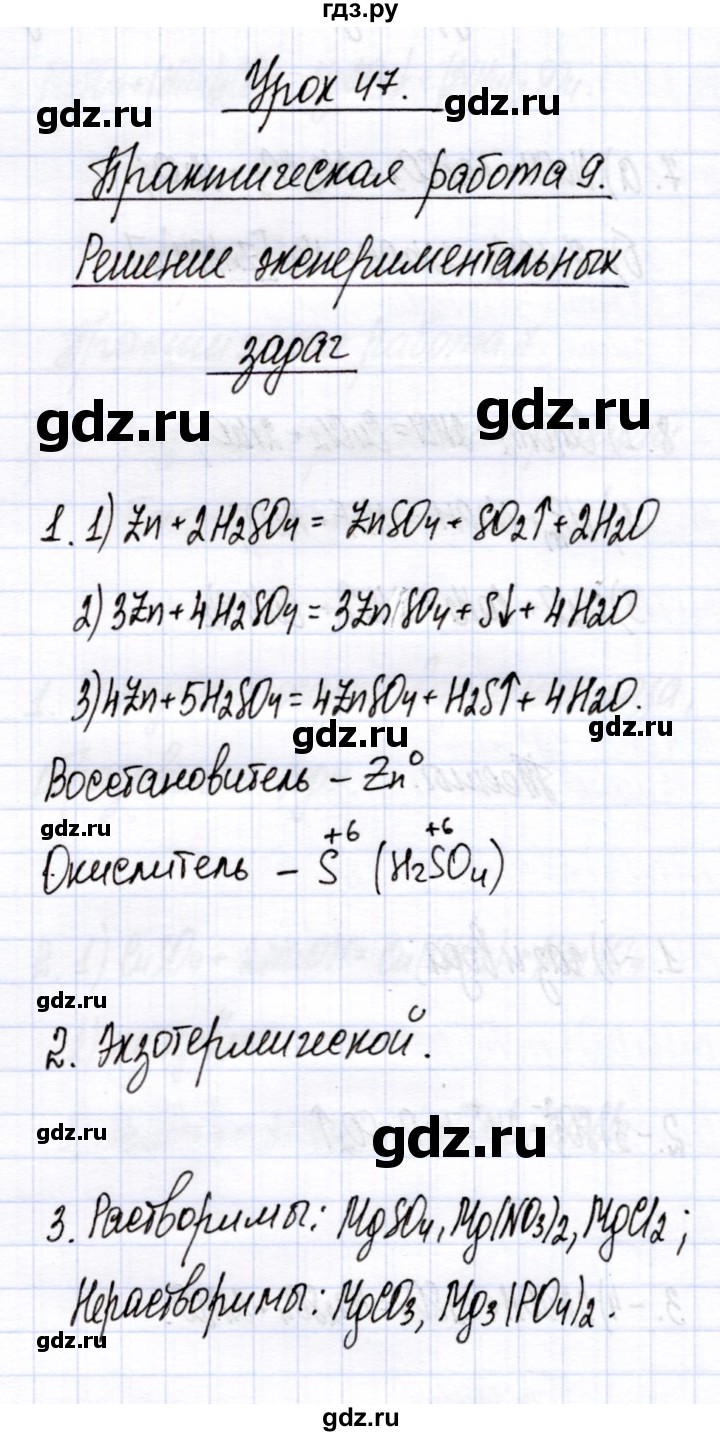 гдз.ру
Урок 47.
gdz.ru
gdz.ru
Практическая работа 9.
Решение экспериментальных
задач
gdz.ru
gdz.ru
1. 1) Zn + 2H2SO4 = ZnSO4 + SO2↑ + 2H2O
2) 3Zn + 4H2SO4 = 3ZnSO4 + S↓ + 4H2O
3) 4Zn + 5H2SO4 = 4ZnSO4 + H2S↑ + 4H2O.
gdz.ru
gdz.ru
Восстановитель – Zn⁰
gdz.ru
Окислитель – S⁺⁶ (H2S⁺⁶O4)
gdz.ru
2. Экзотермической.
gdz.ru
gdz.ru
3. Растворимы: MgSO4, Mg(NO3)2, MgCl2;
Нерастворимы: MgCO3, Mg3(PO4)2.
gdz.ru
gdz.ru